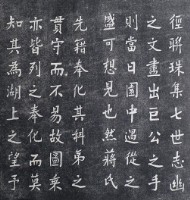 徑聯珠集七世志幽
之文盡出巨公之手
則當日園中過從之
盛可想見也然蔣氏
先籍奉化其科弟之
貫守而不易故園乘
亦皆列之奉化而莫
知其為湖上之望予